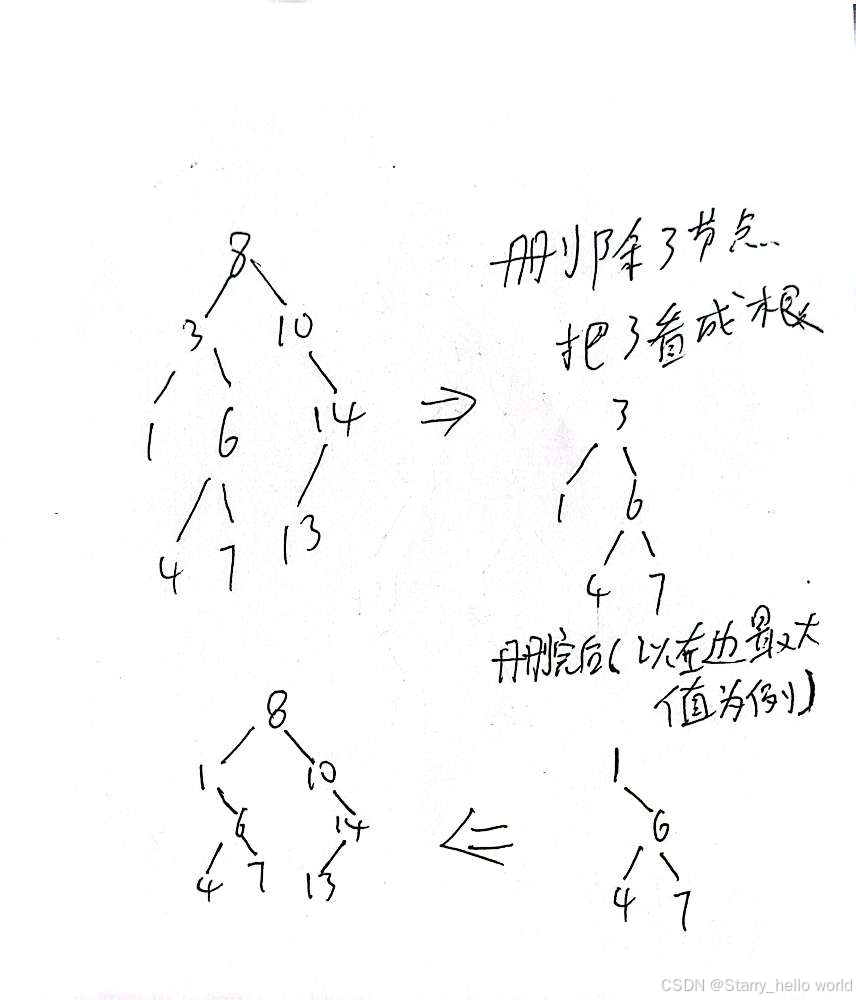 8
3 10
1 6 14
4 7 13
删除3节点
把3看成根
3
1 6
4 7
删完后(以左边最大
值为例)
1
6
4 7
8
1 10
6 14
4 7 13
CSDN @Starry_hello world